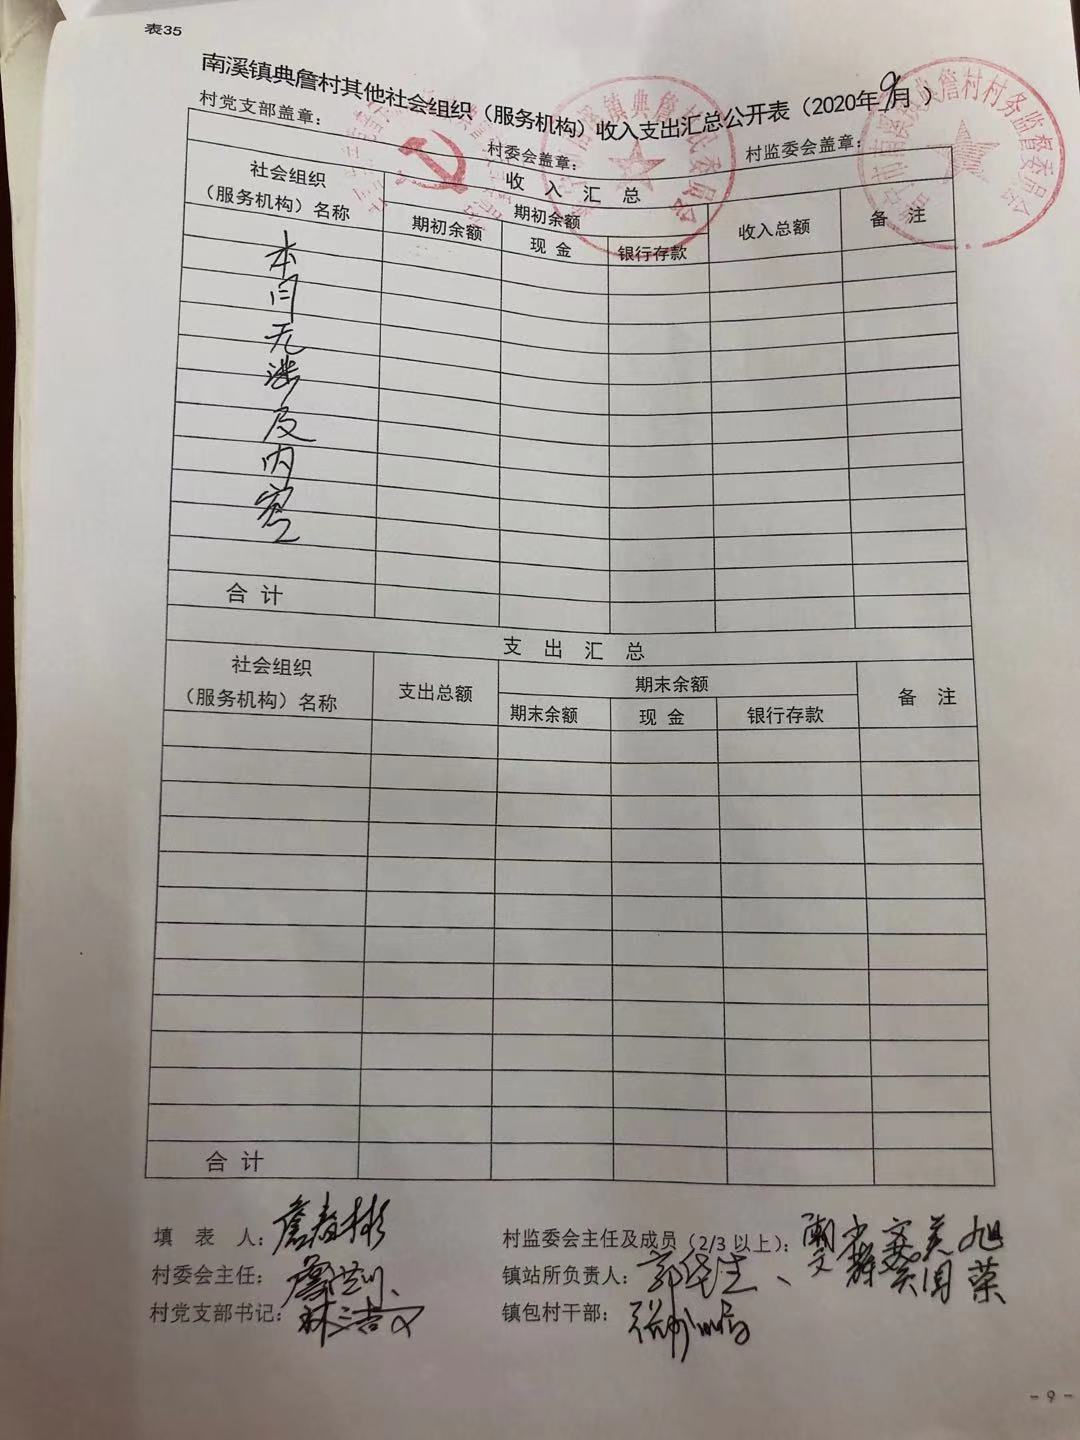 表35
南溪镇典詹村其他社会组织（服务机构）收入支出汇总公开表（2020年9月）
村党支部盖章： 村委会盖章： 村监委会盖章：
社会组织（服务机构）名称 收入汇总 备注
期初余额 收入总额
期初余额 现金 银行存款
本月无涉及内容
合计
支出汇总
社会组织（服务机构）名称 支出总额 期末余额 备注
期末余额 现金 银行存款
合计
填表人：詹春彬 村监委会主任及成员（2/3以上）：
村委会主任： 镇站所负责人：
村党支部书记： 镇包村干部：
- 9 -